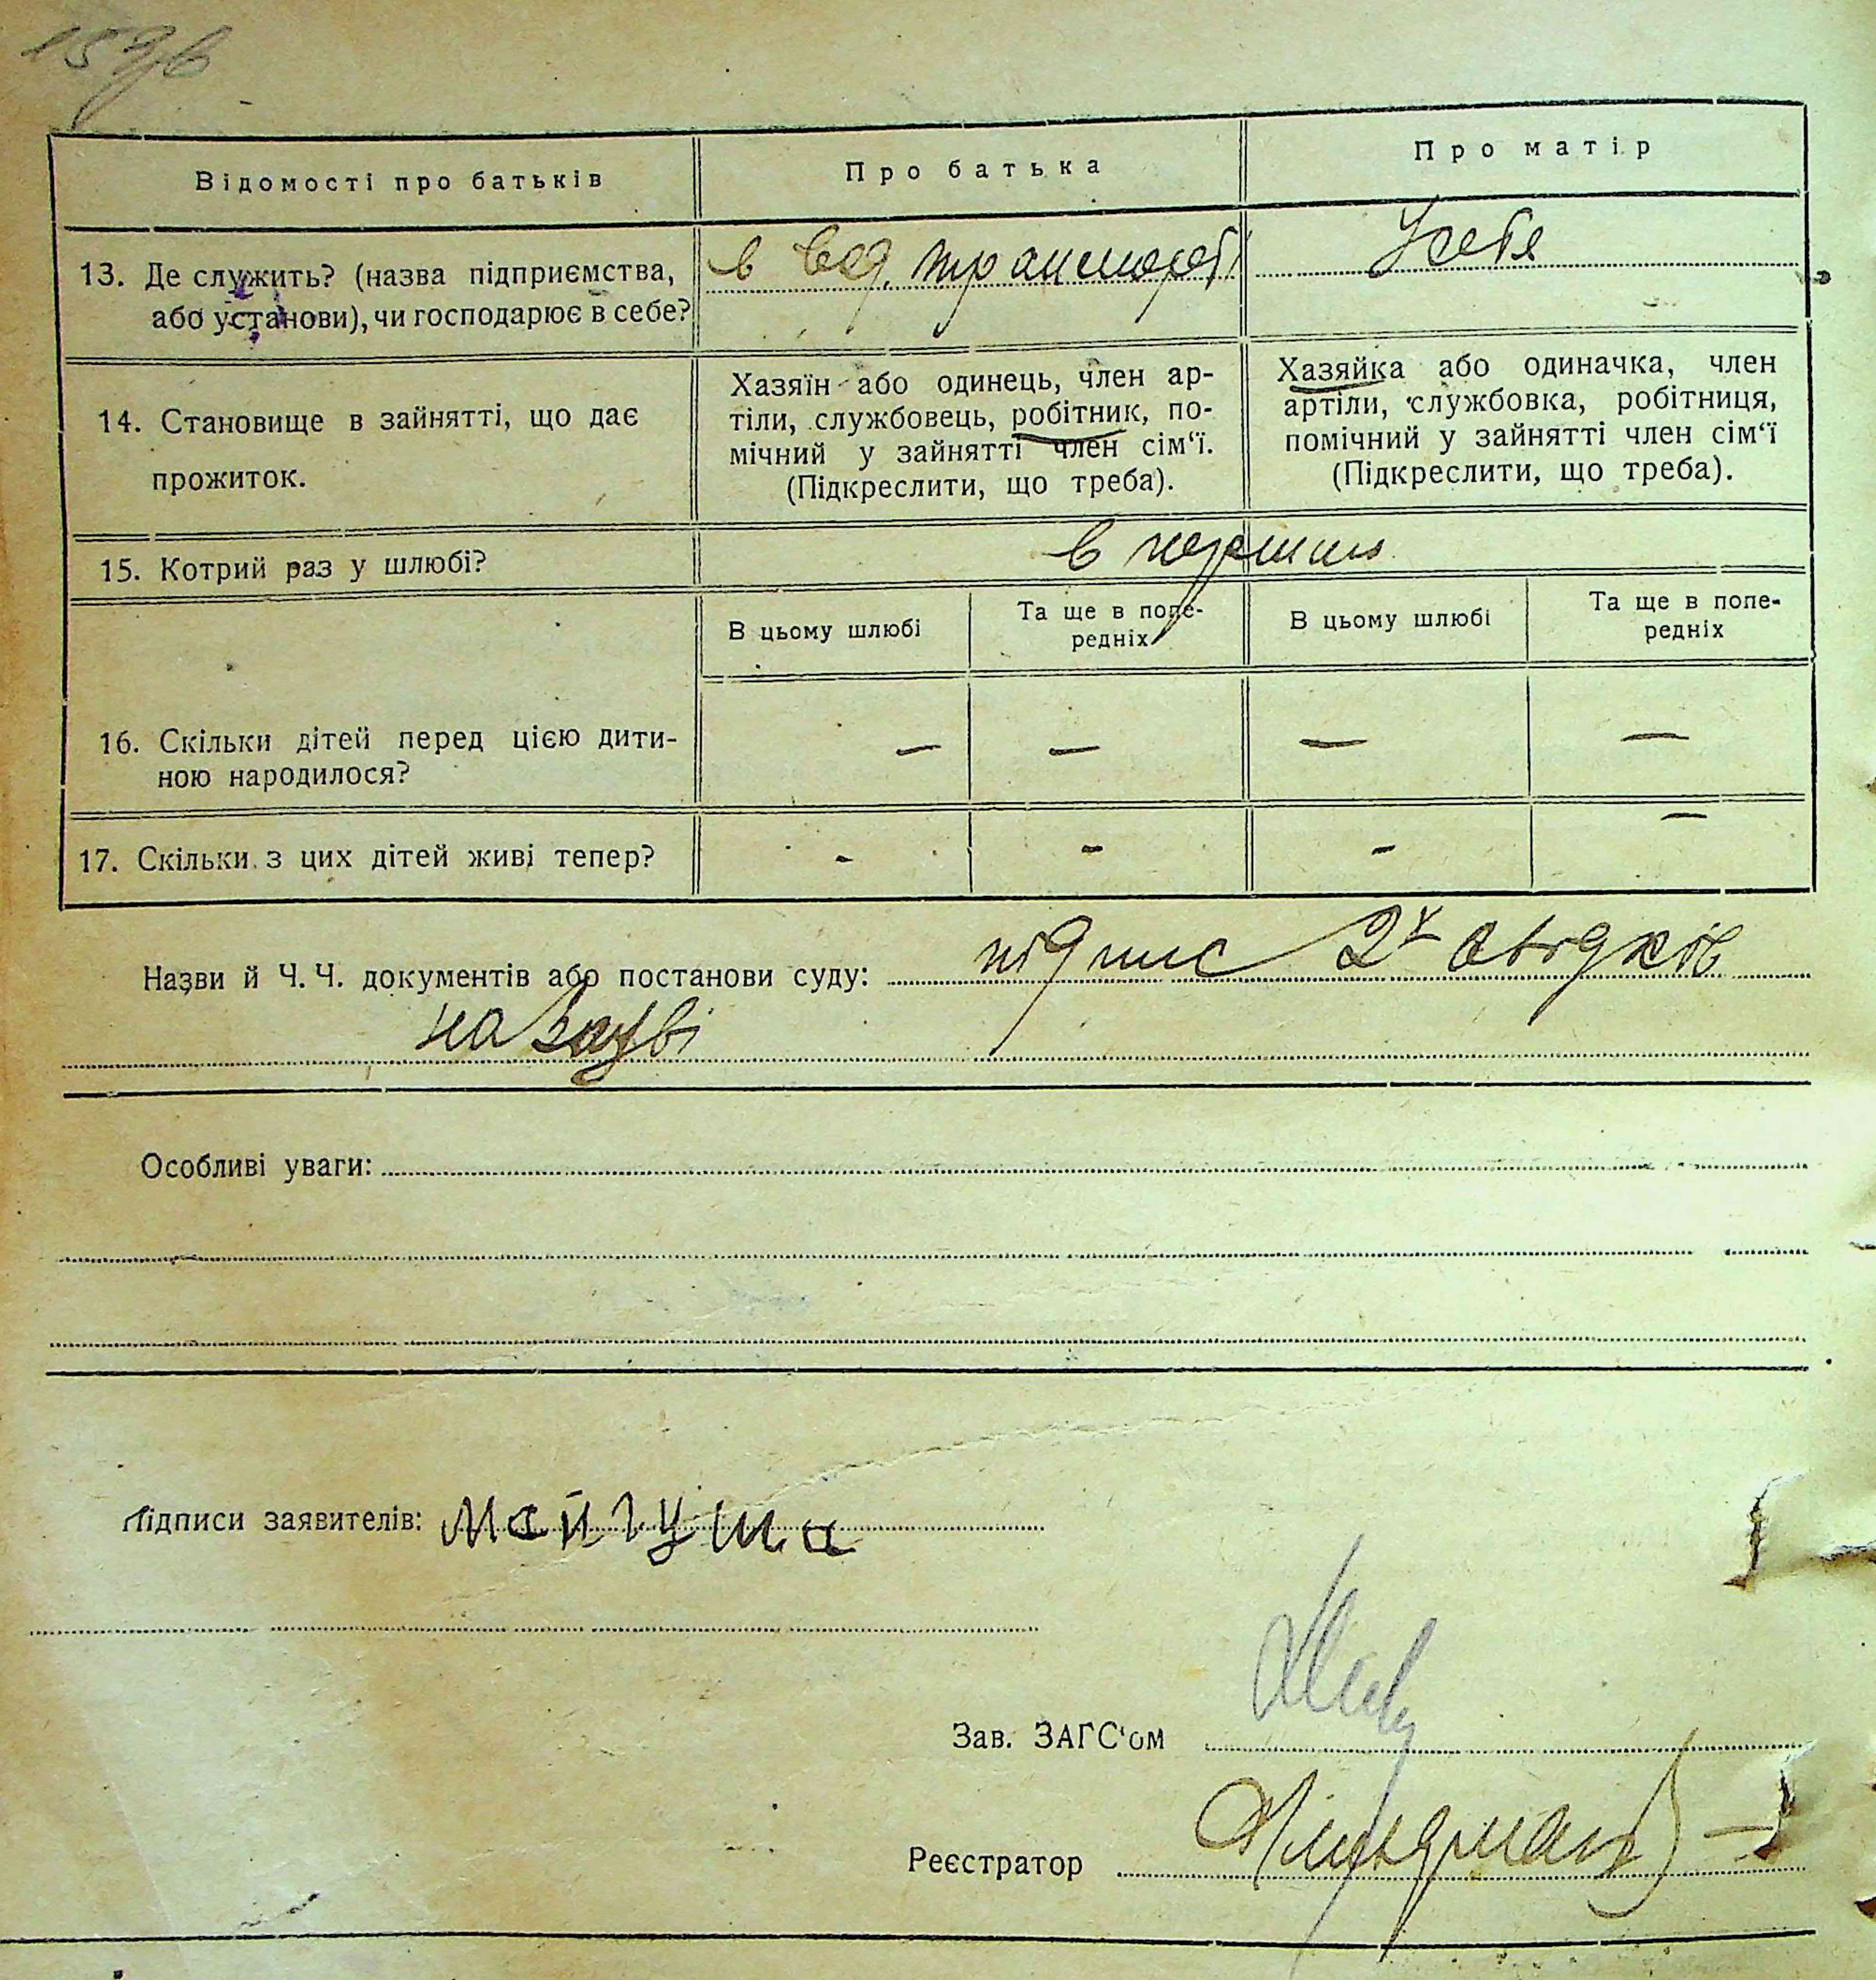 159зв
Відомості про батьків
Про батька
Про матір
13. Де служить? (назва підприємства,
або установи), чи господарює в себе?
в вод. транспорті
У себя
14. Становище в зайнятті, що дає
прожиток.
Хазяїн або одинець, член ар-
тіли, службовець, робітник, по-
мічний у зайнятті член сім‘ї.
(Підкреслити, що треба).
Хазяйка або одиначка, член
артіли, службовка, робітниця,
помічний у зайнятті член сім‘ї
(Підкреслити, що треба).
15. Котрий раз у шлюбі?
в першим
В цьому шлюбі
Та ще в попе-
редніх
В цьому шлюбі
Та ще в попе-
редніх
16. Скільки дітей перед цією дити-
ною народилося?
— — — —
17. Скільки з цих дітей живі тепер?
- - - —
Назви й Ч. Ч. документів або постанови суду: підпис 2х свідків
на заяві
Особливі уваги:
Підписи заявителів: Майгуша
Зав. ЗАГС‘ом
Реєстратор